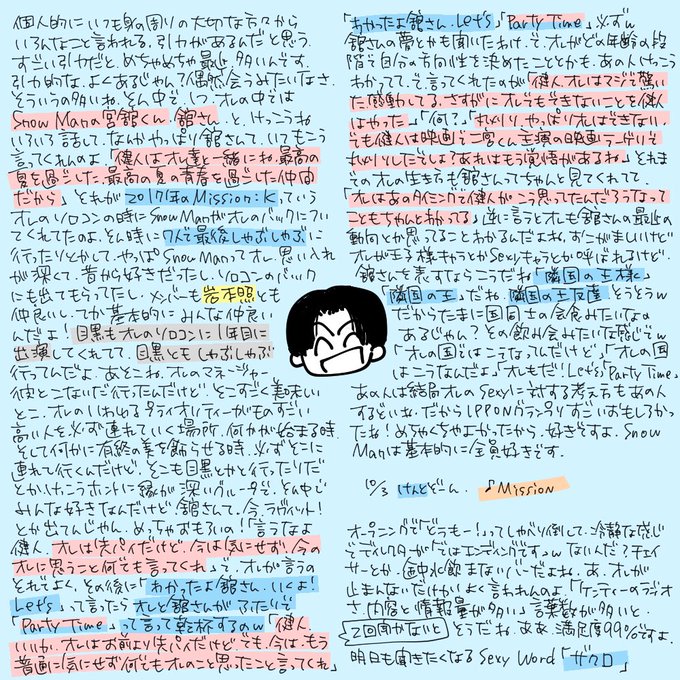 個人的にいても身の周りの大切な方々から
いろんなこと言われる。引力があるんだと思う。
すごい引力だと。めちゃめちゃ最近多いんです。
引力的な。よくあるじゃん?偶然会うみたいなさ。
そういうの多いね。そん中で、1つ、オレの中では
Snow Manの宮舘くん。舘さん。と、けっこうね
いろいろ話して。なんかやっぱり舘さんて、いてもこう
言ってくれんのよ「健人はオレ達と一緒にね、最高の
夏を過ごした。最高の夏の青春を過ごした仲間
だから」それが2017年のMission:Kっていう
オレのソロコンの時にSnow Manがオレのバックについ
てくれてたのよ。そん時に7人で最後しゃぶしゃぶに
行ったりとかして。やっぱSnow Manってオレ、思い入れ
が深くて。昔から好きだったし。ソロコンのバック
にも出てもらってたし。メンバーも岩本照とも
仲良いし。てか基本的にみんな仲良い
んだよ!目黒もオレのソロコンに1年目に
出演してくれてて。目黒ともしゃぶしゃぶ
行ってんだよ。あとこね、オレのマネージャー
使とこないだ行ったんだけど。そこすごく美味しい
とこ。オレのいわゆるプライオリティーがものすごい
高い人を必ず連れていく場所。何かが始まる時、
そして何かに有終の美を飾らせる時。必ずそこに
連れて行くんだけど。そこも目黒とかと行ったりだ
とか。けっこうホントに縁が深いグループで。そん中で
みんな好きなんだけど。舘さんて、今、ラヴィット!
とか出てんじゃん。めっちゃおもろいの!「言うなよ
健人。オレは先パイだけど、今は気にせず、今の
オレに思うこと何でも言ってくれ」で、オレが言うの
それでよく。その後に「わかったよ舘さん。いくよ!
Let's」って言ったらオレと舘さんがふたりで
「Party Time」って言って乾杯するのw「健人
いいか。オレはお前より先パイだけど。でも、今は、もう
普通に気にせず何でもオレのこと思ったこと言ってくれ」
「わかったよ舘さん。Let's」「Party Time」必ずw
舘さんの夢とかも聞いたわけ。で、オレがどの年齢の段
階で自分の方向性を決めたこととかも、あの人けっこう
わかってて。で言ってくれたのが「健人、オレはマジで驚い
た。感動してる。さすがにオレでもできないことを健人
はやった」「何?」「丸刈り。やっぱりオレはできない。
でも健人は映画で二宮くん主演の映画ラーゲリで
丸刈りしたでしょ?あれはもう覚悟があるね」それま
でのオレの生き方も舘さんってちゃんと見てくれてて。
「オレはあのタイミングで健人がこう思ってたんだろうなって
こともちゃんとわかってる」逆に言うとオレも舘さんの最近の
動向とか思ってることわかるんだよね。おこがましいけど
オレが王子様キャラとかSexyキャラとか呼ばれるけど、
舘さんを表すならこうだね「隣国の王様」
「隣国の王」だね。隣国の王友達。そうそうw
だからたまに国同士の会食みたいなの
あるじゃん?その飲み会みたいな感じでw
「オレの国ではこうなってんだけど」「オレの国
はこうなんだよ」「オレもだ!Let's」「Party Time」
あの人は結局オレのSexyに対する考え方もあの人
するどいね。だからIPPONグランプリすごいおもしろかっ
たね!めちゃくちゃよかったから。好きですよ。Snow
Manは基本的に全員好きです。
10/3 けんとぞーん. ♪Mission
オープニングで「どうもー!」ってしゃべり倒して、冷静な感じ
でディレクターが「ではエンディングです」w ないんだ?チェイ
サーとか。途中水飲まないバーだよね。あ、オレが
止まんないだけか。よく言われんのよ「ケンティーのラジオ
さ、内容と情報量が多い」言葉数が多いと。
2回聞かないと どうだね。ああ、満足度99%ですよ。
明日も聞きたくなるSexy Word「ザクロ」